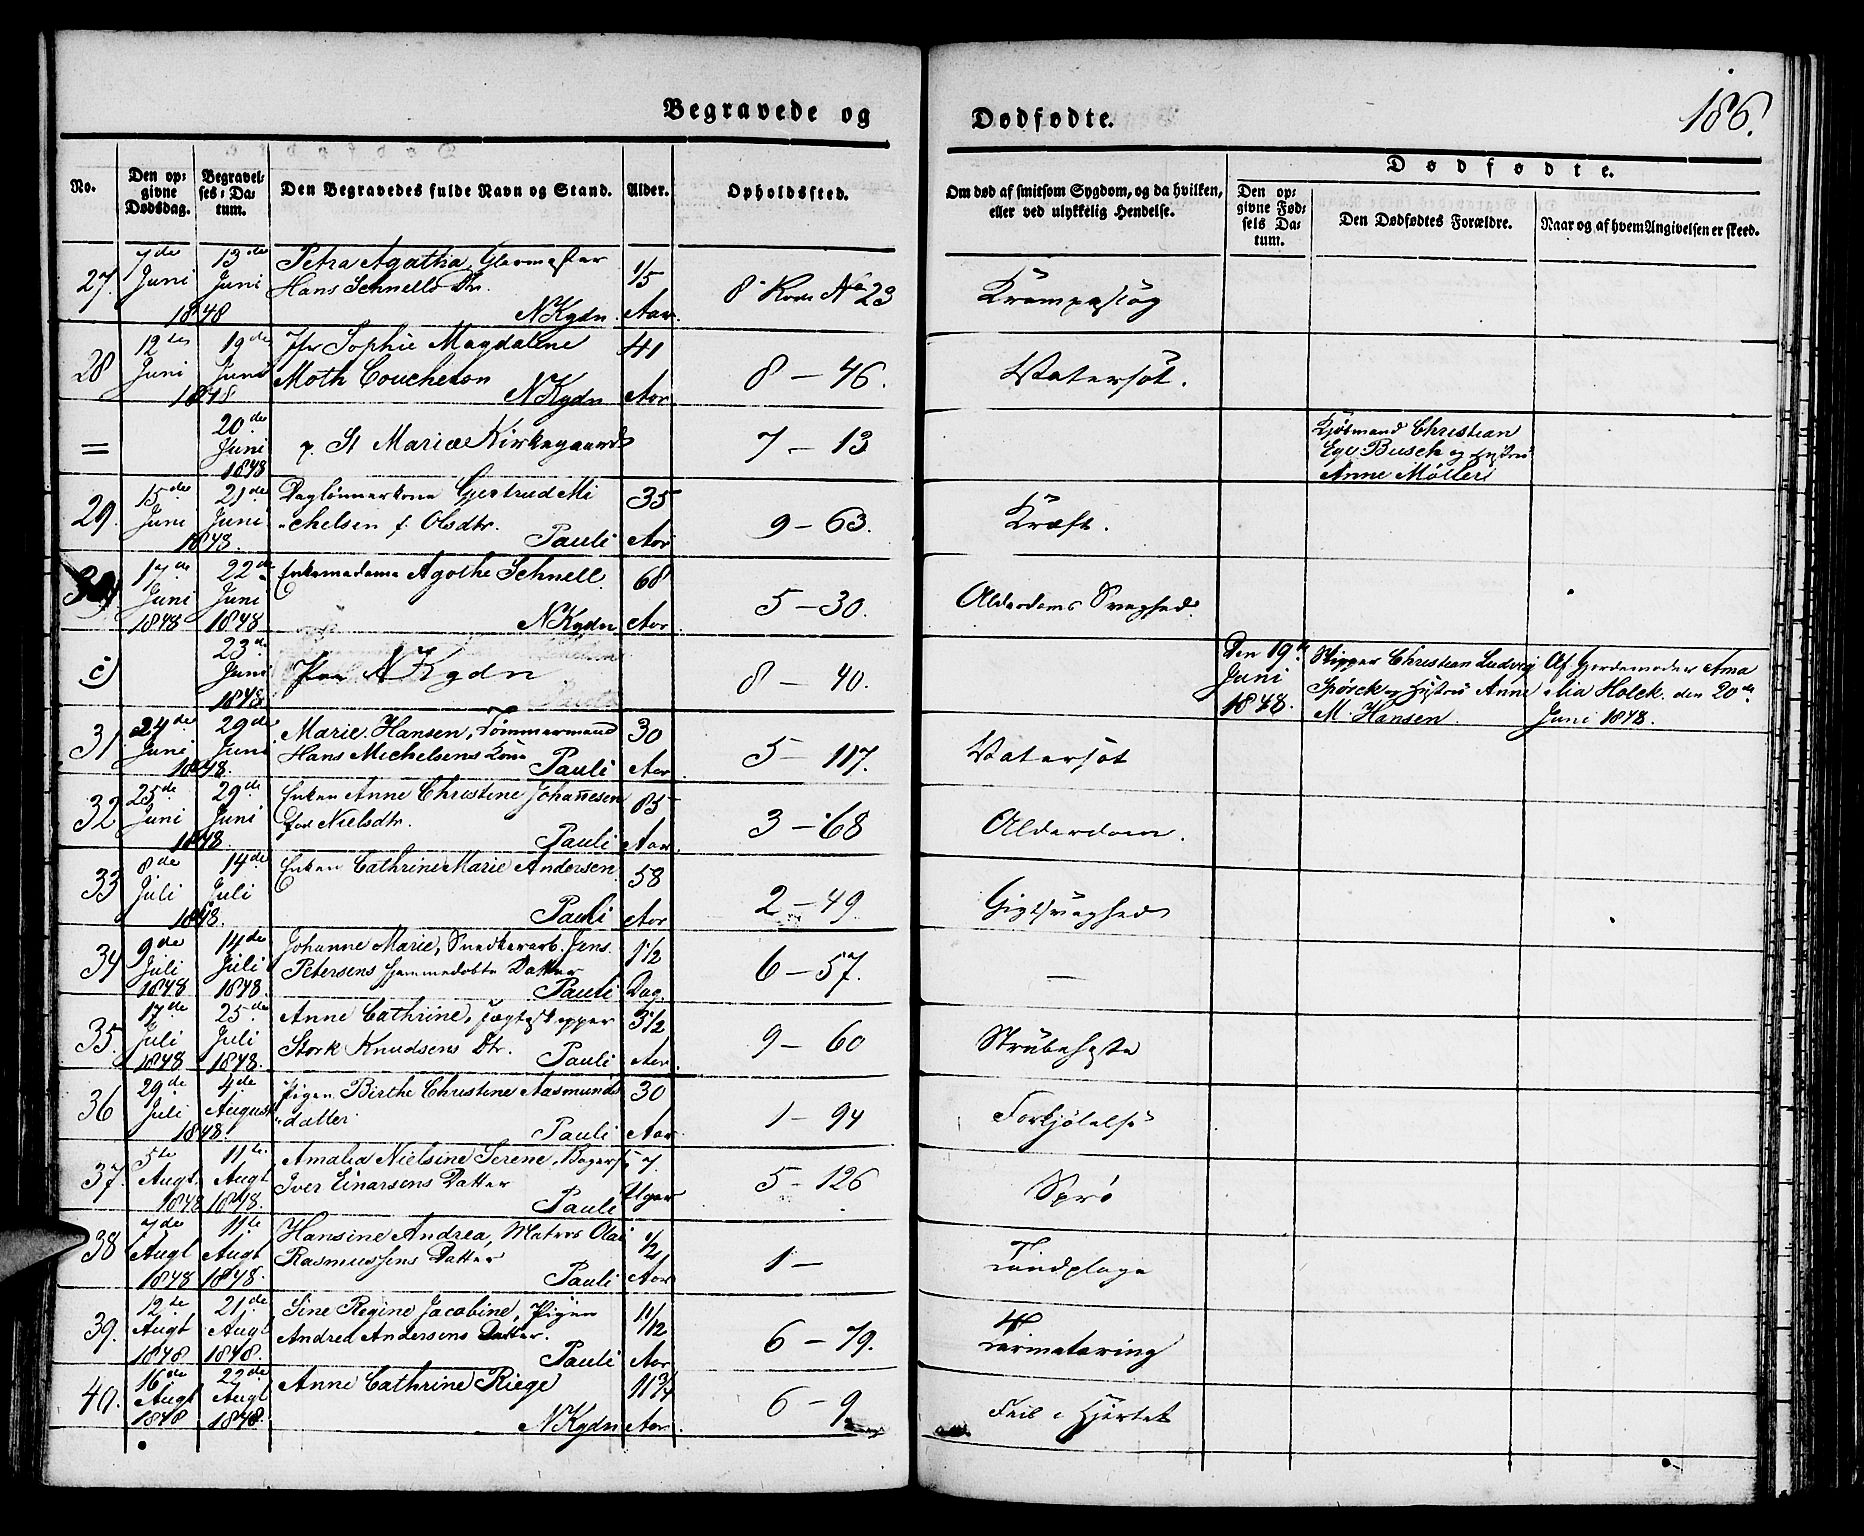 Begravede og Dødfødte.
186.
No.
Den opgivne Dødsdag.
Begravelses-Datum.
Den Begravedes fulde Navn og Stand.
Alder.
Opholdssted.
Om død af smitsom Sygdom, og da hvilken, eller ved ulykkelig Hendelse.
Dødfødte.
Den opgivne Fødsels Datum.
Den Dødfødtes Forældre.
Naar og af hvem Angivelsen er skeed.
27. 7de Juni 13de Juni 1848 Petra Agatha, Glarmester
Hans Schnells Dtr. NKgdn 1/5 Aar. 8 Rode No 23 Krampeslag
28 12te Juni 19de Juni 1848 Jfr Sophie Magdalene
Moth Coucheron NKgdn 41 Aar. 8 – 46. Vatersot.
= 20de Juni 1848 p. St Mariæ Kirkegaard 7 – 13 Kjøbmand Christian
Busch og Hustru
Anne Møller
29. 15de Juni 21de Juni 1848. Daglønnerkone Gjertrud Mi
chelsen f. Olsdtr. Pauli 35 Aar 9 – 63. Kræft.
30 17de Juni 1848 22de Juni 1848 Enkemadame Agathe Schnell
NKgdn 68 Aar. 5 – 30. Alderdoms Svaghed.
c) 23de Juni 1848. Paa NKgdn 8 – 40. Den 19de Juni 1848. Skipper Christian Ludvig
Spörck og Hustru Anne
M. Hansen. Af Gjordemoder Ama
lia Holck. den 20de
Juni 1848.
31. 24de Juni 29de Juni 1848. Marie Hansen, Tømmermand
Hans Michelsens Kone Pauli 30 Aar. 5 – 117. Vatersot
32 25de Juni 29de Juni 1848. Enken Anne Christine Johannesen
født Nielsdtr. Pauli 85 Aar. 3 – 68 Alderdom.
33 8de Juli 14de Juli 1848. Enken Cathrine Marie Andersen.
Pauli 58 Aar 2 – 49. Gigtsvaghed
34 9de Juli 1848 14de Juli 1848. Johanne Marie, Snedkerarb. Jens
Petersens hjemmedøbte Datter
Pauli 1 1/2 Dag. 6 – 57. —
35. 17de Juli 1848 25de Juli 1848. Anne Cathrine, Jægteskipper
Stork Knudsens Dtr. Pauli 3 1/2 Aar. 9 – 60 Strubehoste
36 29de Juli 4de August 1848. Pigen Birthe Christine Aasmunds
datter Pauli 30 Aar. 1 – 94 Forkjølelse
37. 5te Augt. 1848 11te Augt 1848. Amalia Nielsine Serene, Bagers.
Iver Einarsens Datter
Pauli 7 Uger 5 – 126 Sprø
38 7de Augt 1848 11te Augt 1848. Hansine Andrea, Matros Olai
Rasmussens Datter
Pauli 1/2 Aar 1 – Tandplage
39. 12te Augt 1848 21de Augt 1848. Sine Regine Jacobine, Pigen
Andrea Andersens Datter.
Pauli 11/12 Aar 6 – 79.
40. 16de Augt 1848 22de Augt 1848. Anne Cathrine Riege
NKgdn 11 3/4 Aar. 6 – 9. Feil i Hjertet